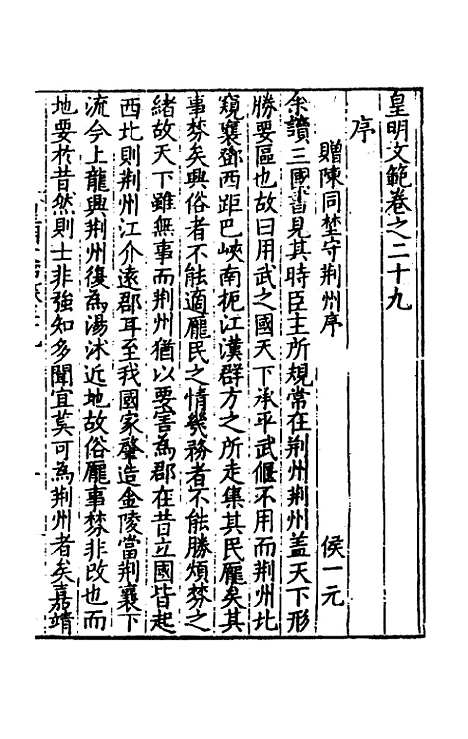 皇明文範卷之二十九
序
贈陳同埜守荆州序 侯一元
余讀三國書見其時臣主所規常在荆州荆州蓋天下形
勝要區也故曰用武之國天下承平武偃不用而荆州北
窺襄鄧西距巴峽南扼江漢群方之所走集其民龐矣其
事棼矣興俗者不能適龐民之情幾務者不能勝煩棼之
緒故天下雖無事而荆州猶以要害為郡在昔立國皆起
西北則荆州江介遠郡耳至我國家肇造金陵當荆襄下
流今上龍興荆州復為湯沐近地故俗龐事棼非改也而
地要於昔然則士非強知多聞宜莫可為荆州者矣嘉靖